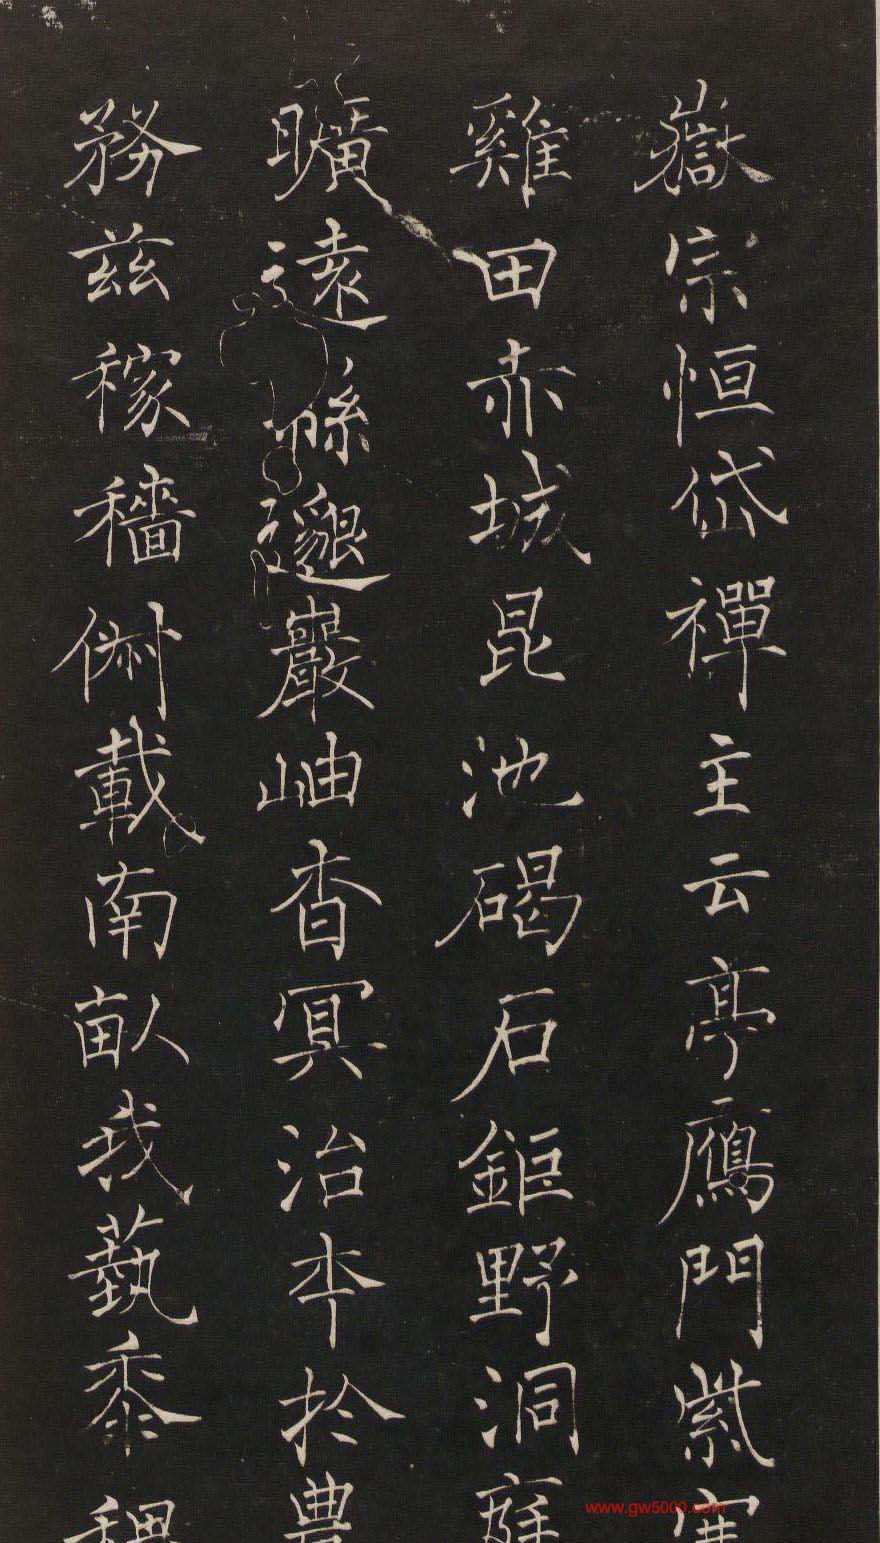 嶽宗恒岱禪主云亭鴈門紫塞
雞田赤城昆池碣石鉅野洞庭
曠遠緜邈巖岫杳冥治本於農
務茲稼穡俶載南畝我藝黍稷
www.gw5000.com